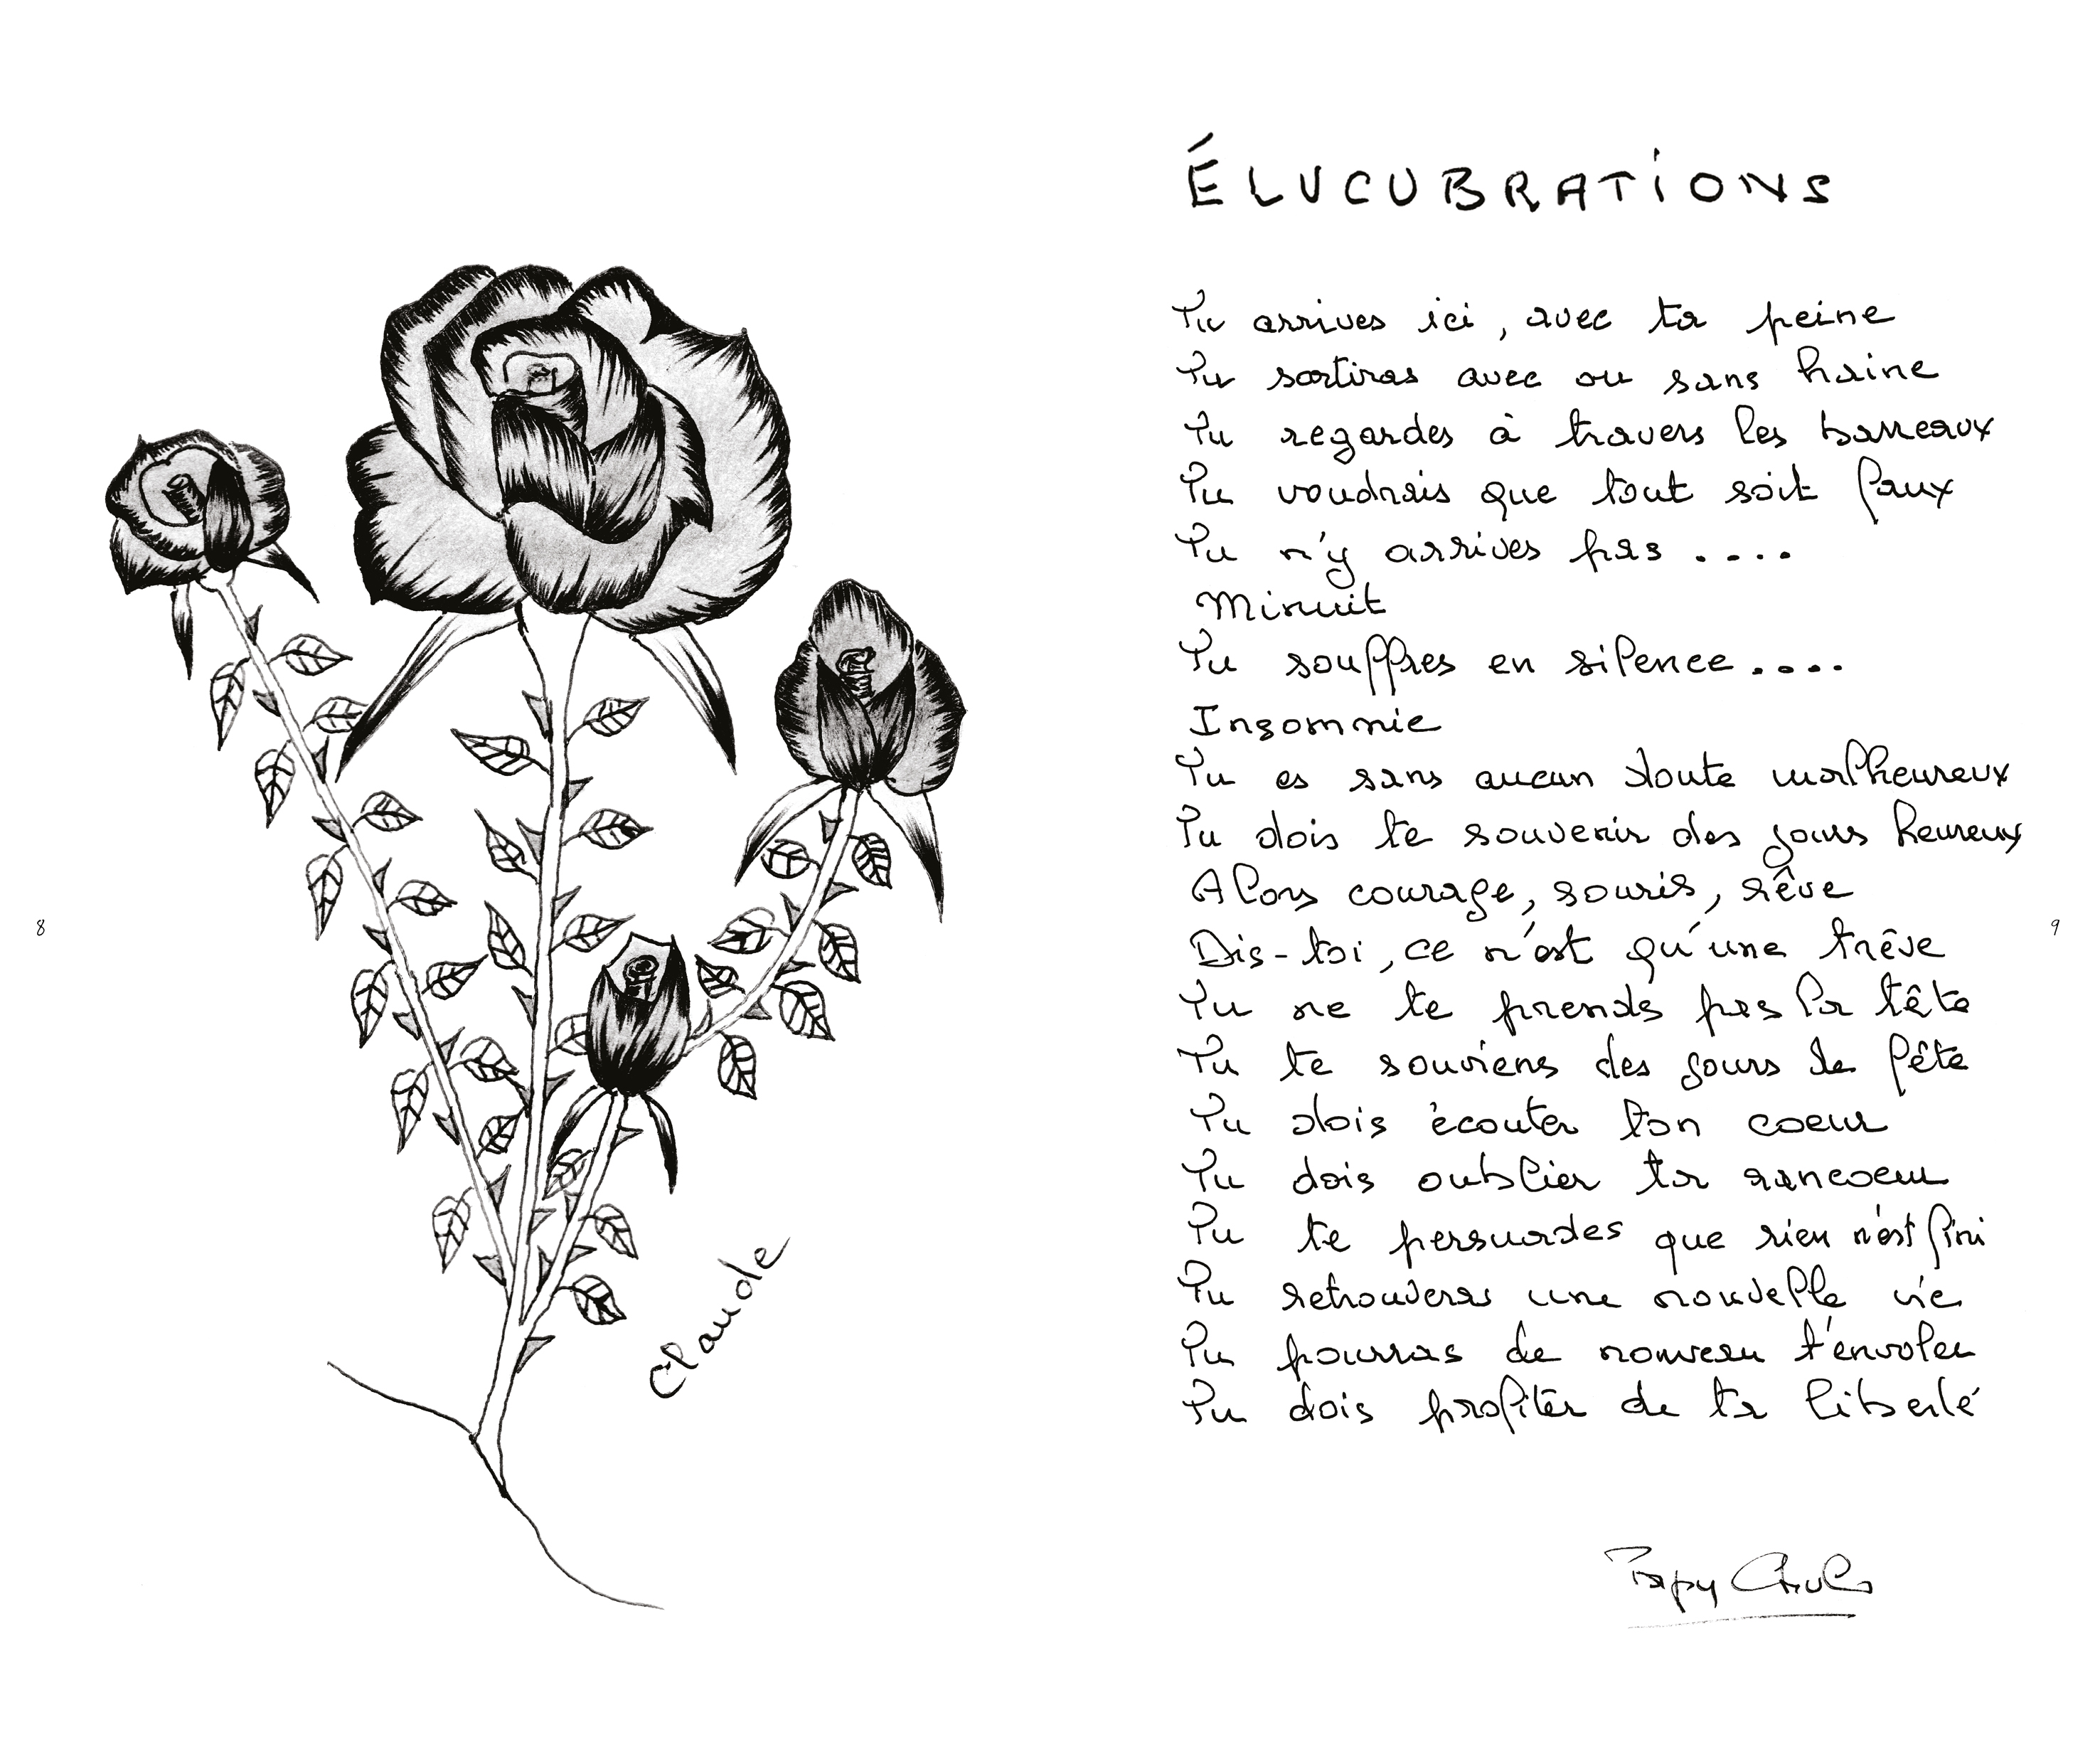 8
Claude
ÉLUCUBRATIONS
Tu arrives ici, avec ta peine
Tu sortiras avec ou sans haine
Tu regardes à travers les barreaux
Tu voudrais que tout soit faux
Tu n'y arrives pas ....
Minuit
Tu souffres en silence ....
Insomnie
Tu es sans aucun doute malheureux
Tu dois te souvenir des jours heureux
Alors courage, souris, rêve
Dis-toi, ce n'est qu'une trêve
Tu ne te prends pas la tête
Tu te souviens des jours de fête
Tu dois écouter ton coeur
Tu dois oublier ta rancoeur
Tu te persuades que rien n'est fini
Tu retrouveras une nouvelle vie
Tu pourras de nouveau t'envoler
Tu dois profiter de ta liberté
Papy
9